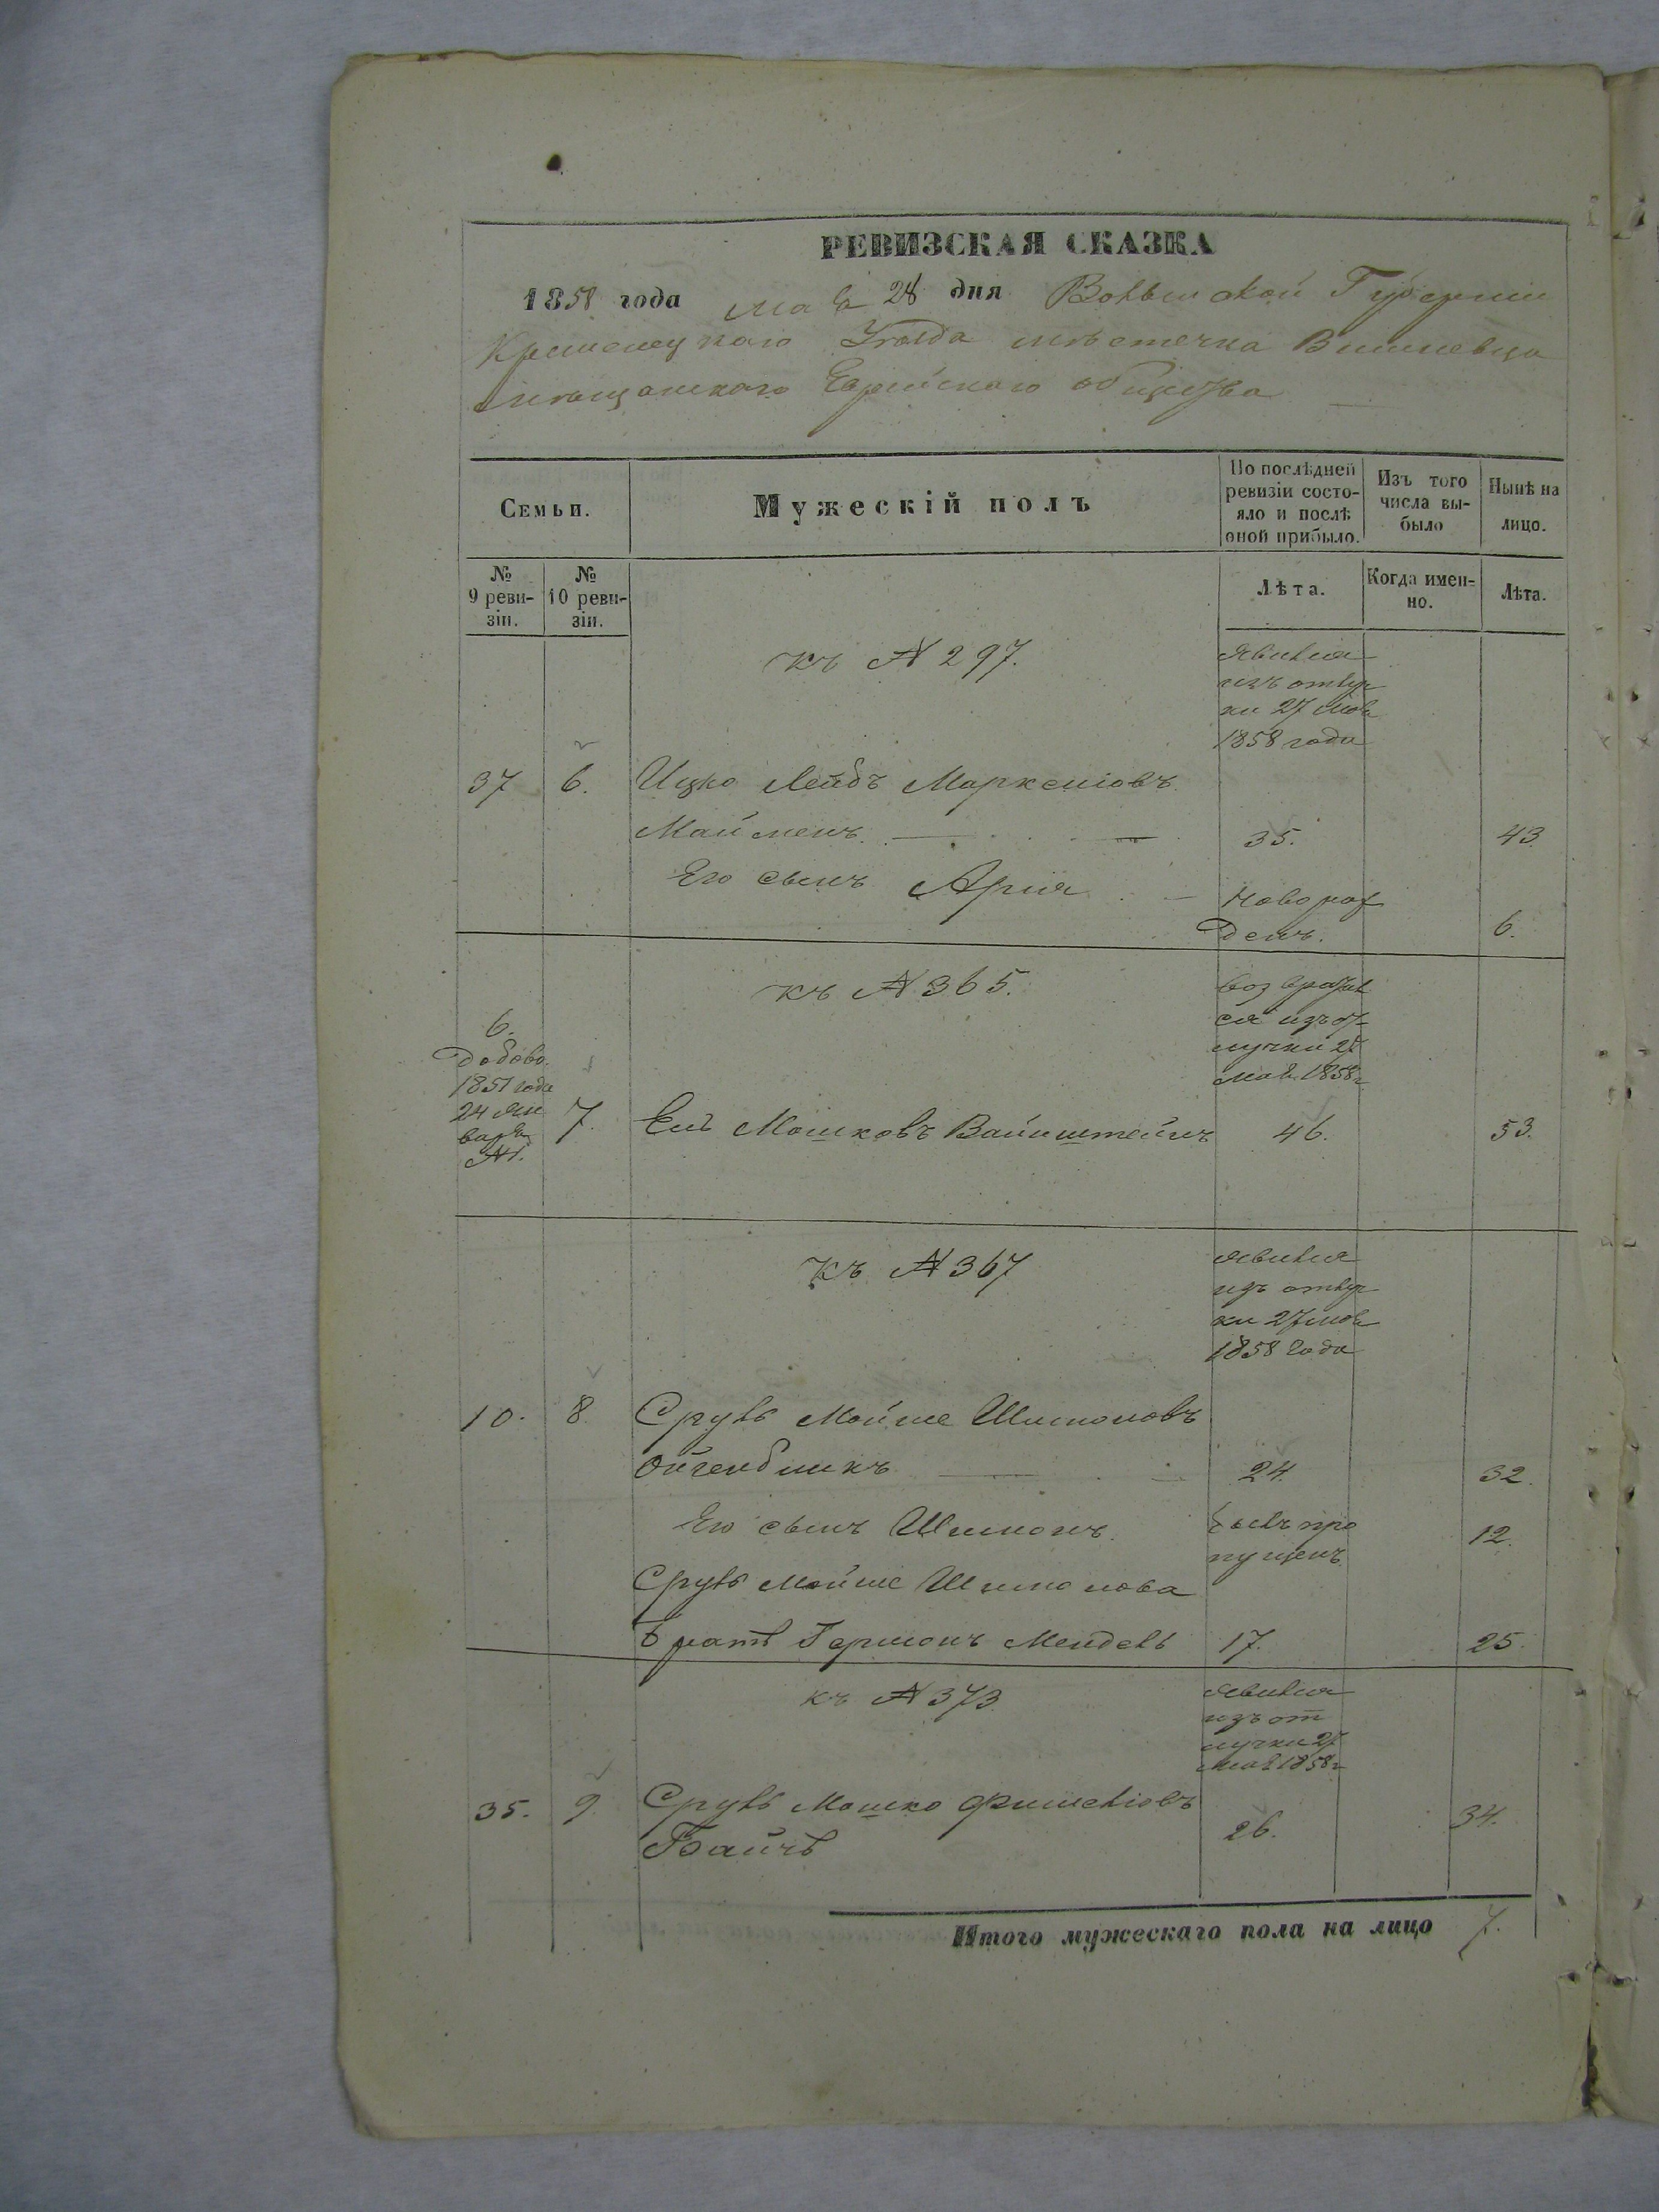 РЕВИЗСКАЯ СКАЗКА
1858 года мая 28 дня Волынской Губернии
Кременецкаго Уѣзда мѣстечка Вишневца
мѣщанскаго Еврейскаго общества
Семьи.
Мужескій полъ
По послѣдней ревизіи состо-яло и послѣ оной прибыло.
Изъ того числа вы-было
Нынѣ на лицо.
№ 9 реви-зіи.
№ 10 реви-зіи.
Лѣта.
Когда имен-но.
Лѣта.
къ № 297.
явился
изъ отлуч
ки 27 мая
1858 года
37 6. Ицко Лейбъ Марксиовъ
Майменъ 35. 43.
Его сынъ Ария Новорож
денъ. 6.
къ № 365.
возвратил
ся изъ от
лучки 27
мая 1858 г
6.
добово.
1851 года
24 Ян
варя
№1.
7. Ель Мошковъ Вайнштейнъ 46. 53.
къ № 367
явился
изъ отлуч
ки 27 мая
1858 года
10. 8. Сруль Мойше Шимоновъ
Ойгенбликъ 24. 32.
Его сынъ Шимонъ былъ про 12.
пущенъ
Сруль Мойше Шимонова
братъ Гершонъ Мендель 17. 25.
къ № 373
явился
изъ от
лучки 27
мая 1858 г
35. 9. Сруль Мошко Фишелiовъ
26. 34.
Итого мужескаго пола на лицо 7.